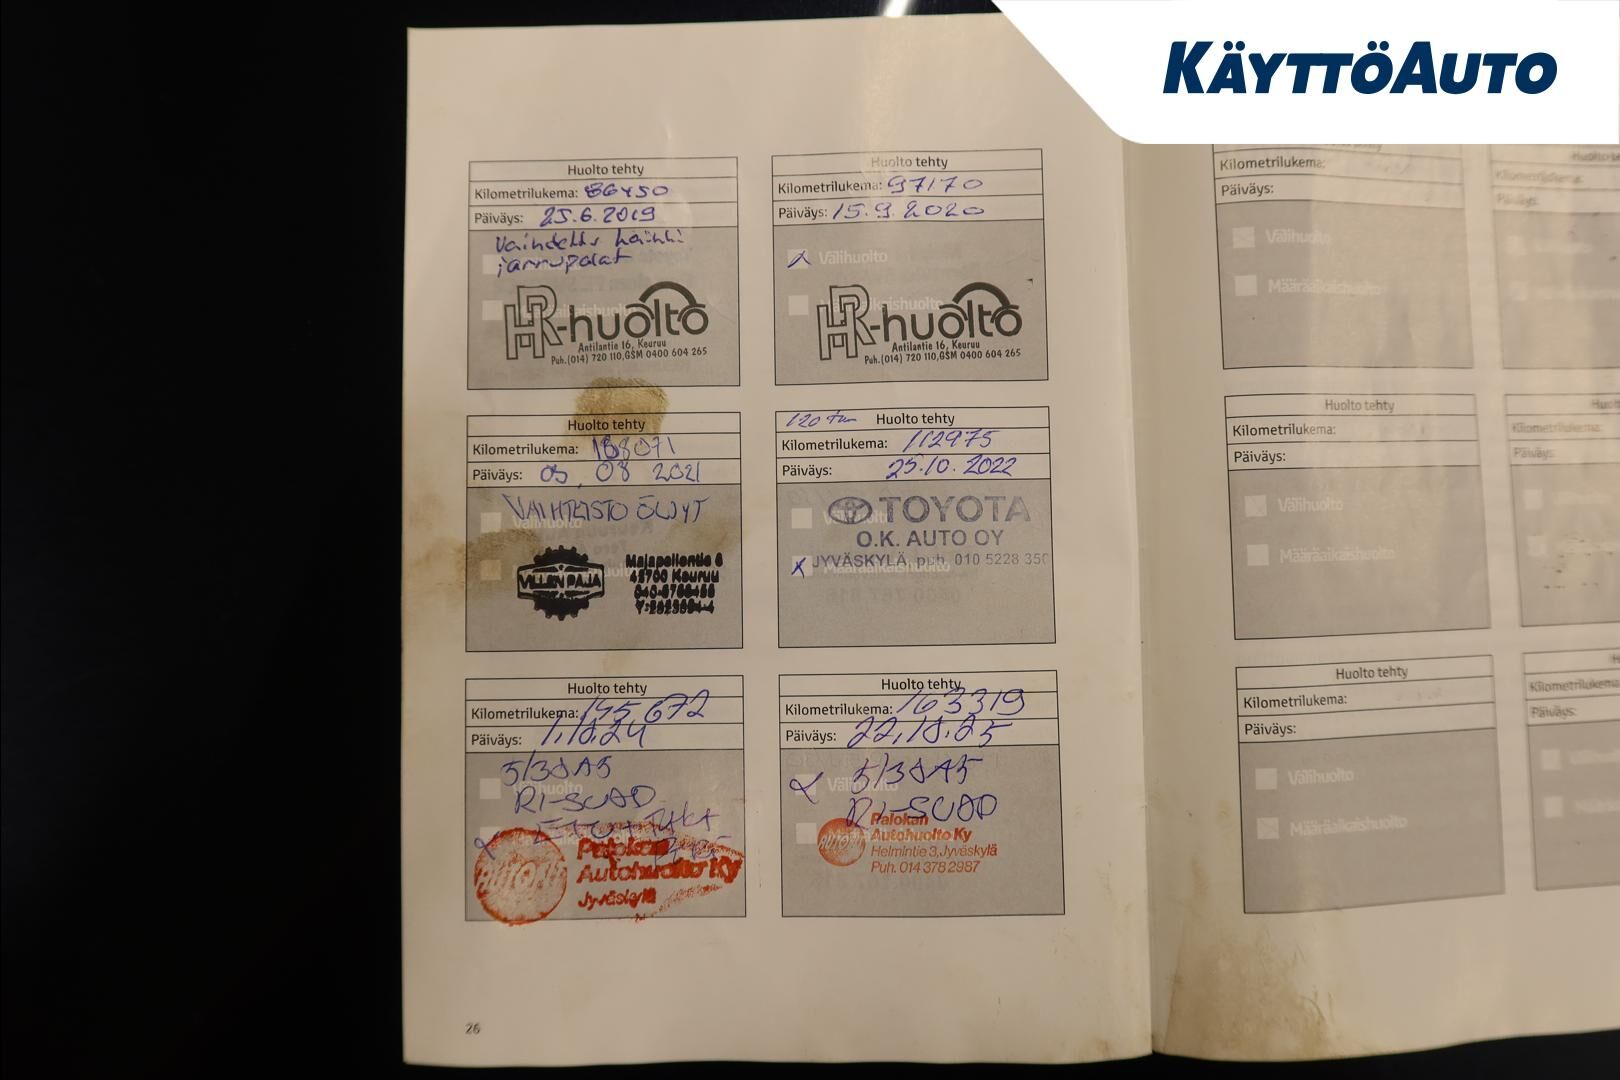 KÄYTTÖAUTO
Huolto tehty
Kilometrilukema: 86450
Päiväys: 25.6.2019
Vaihdettu kaikki
jarrupalat
HR-huolto
Antilantie 16, Keuruu
Puh.(014) 720 110,GSM 0400 604 265
Huolto tehty
Kilometrilukema: 97170
Päiväys: 15.9.2020
Välihuolto
Määräaikaishuolto
HR-huolto
Antilantie 16, Keuruu
Puh.(014) 720 110,GSM 0400 604 265
Huolto tehty
Kilometrilukema: 108071
Päiväys: 03.08 2021
VAIHTEISTO ÖLJYT
Välihuolto
VILLEN PAJA
42700 Keuruu
120 tkm Huolto tehty
Kilometrilukema: 112975
Päiväys: 25.10.2022
TOYOTA
O.K. AUTO OY
JYVÄSKYLÄ, puh. 010 5228 350
Määräaikaishuolto
Huolto tehty
Kilometrilukema: 145,672
Päiväys: 1.10.24
5/30A5
Palokan
Autohuolto Ky
Jyväskylä
Huolto tehty
Kilometrilukema: 163319
Päiväys: 22.10.25
Välihuolto
5/30A5
Palokan
Autohuolto Ky
Helmintie 3, Jyväskylä
Puh. 014 378 2987
26
Kilometrilukema:
Päiväys:
Välihuolto
Määräaikaishuolto
Kilometrilukema:
Päiväys:
Huolto tehty
Kilometrilukema:
Päiväys:
Välihuolto
Määräaikaishuolto
Kilometrilukema:
Päiväys:
Huolto tehty
Kilometrilukema:
Päiväys:
Välihuolto
Määräaikaishuolto
Kilometrilukema:
Päiväys: